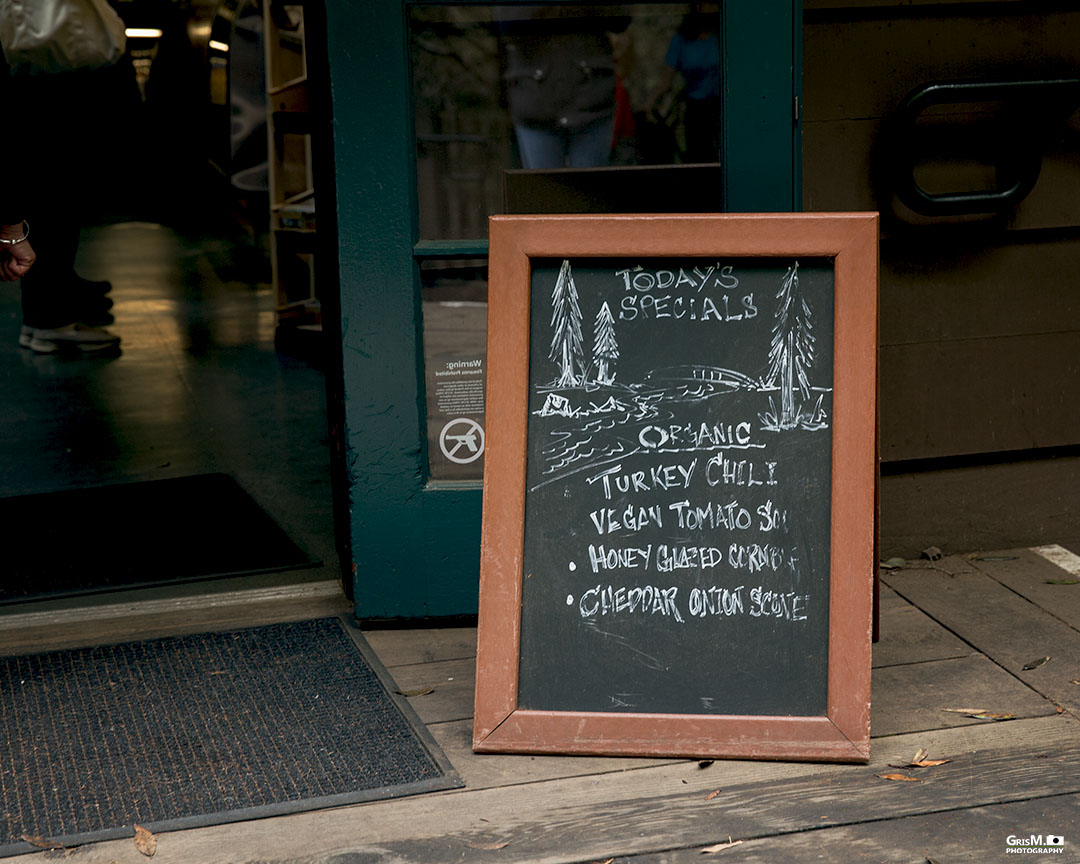 TODAY'S
SPECIALS
ORGANIC
TURKEY CHILI
VEGAN TOMATO
• HONEY GLAZED
• CHEDDAR ONION SCONE
Warning:
Firearms Prohibited
GRISM.
PHOTOGRAPHY